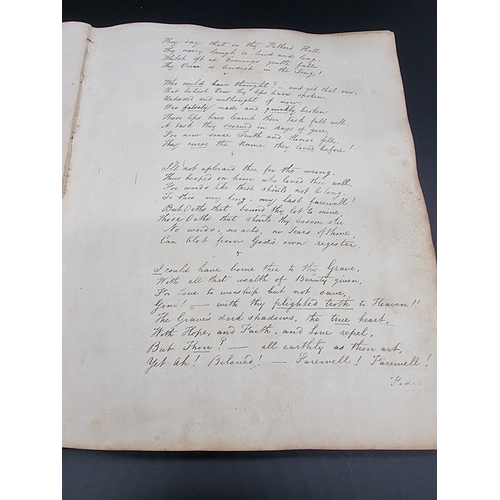 They say that in thy Fathers Hall
Thy merry laugh is loud and long
Whilst oft at Evenings gentle fall
Thy Voice is loudest in the Song!
Who could have thought? — and yet that vow,
That holiest Vow thy lips have spoken
and unthought of now
Was falsely made and quickly broken
Those lips have learnt their task full well
A task they scorned in days of yore,
For now since Truth and Honor fell,
They curse the Name they loved before!
I'll not upbraid thee for the wrong,
Thus heaped on him who loved thee well,
For words like these should not belong,
To this my long, my last farewell!
But Oaths that bound thy lot to mine
Those Oaths that thou'lt thy bosom
No words, no acts, no Tears of thine,
Can blot from God's own register,
I could have borne thee to thy Grave,
With all that wealth of Beauty given,
For Love to worship but not save,
Gone! — with thy plighted troth to Heaven!!
The Grave's dark shadows, the true heart,
With Hope, and Faith, and Love repel,
But Thou? — all earthly as thou art,
Yet Ah! Beloved! — Farewell! Farewell!